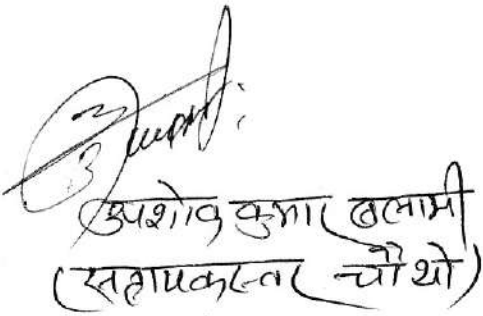 अशोक कुमार बलामी
(सहायकस्तर चौथो)